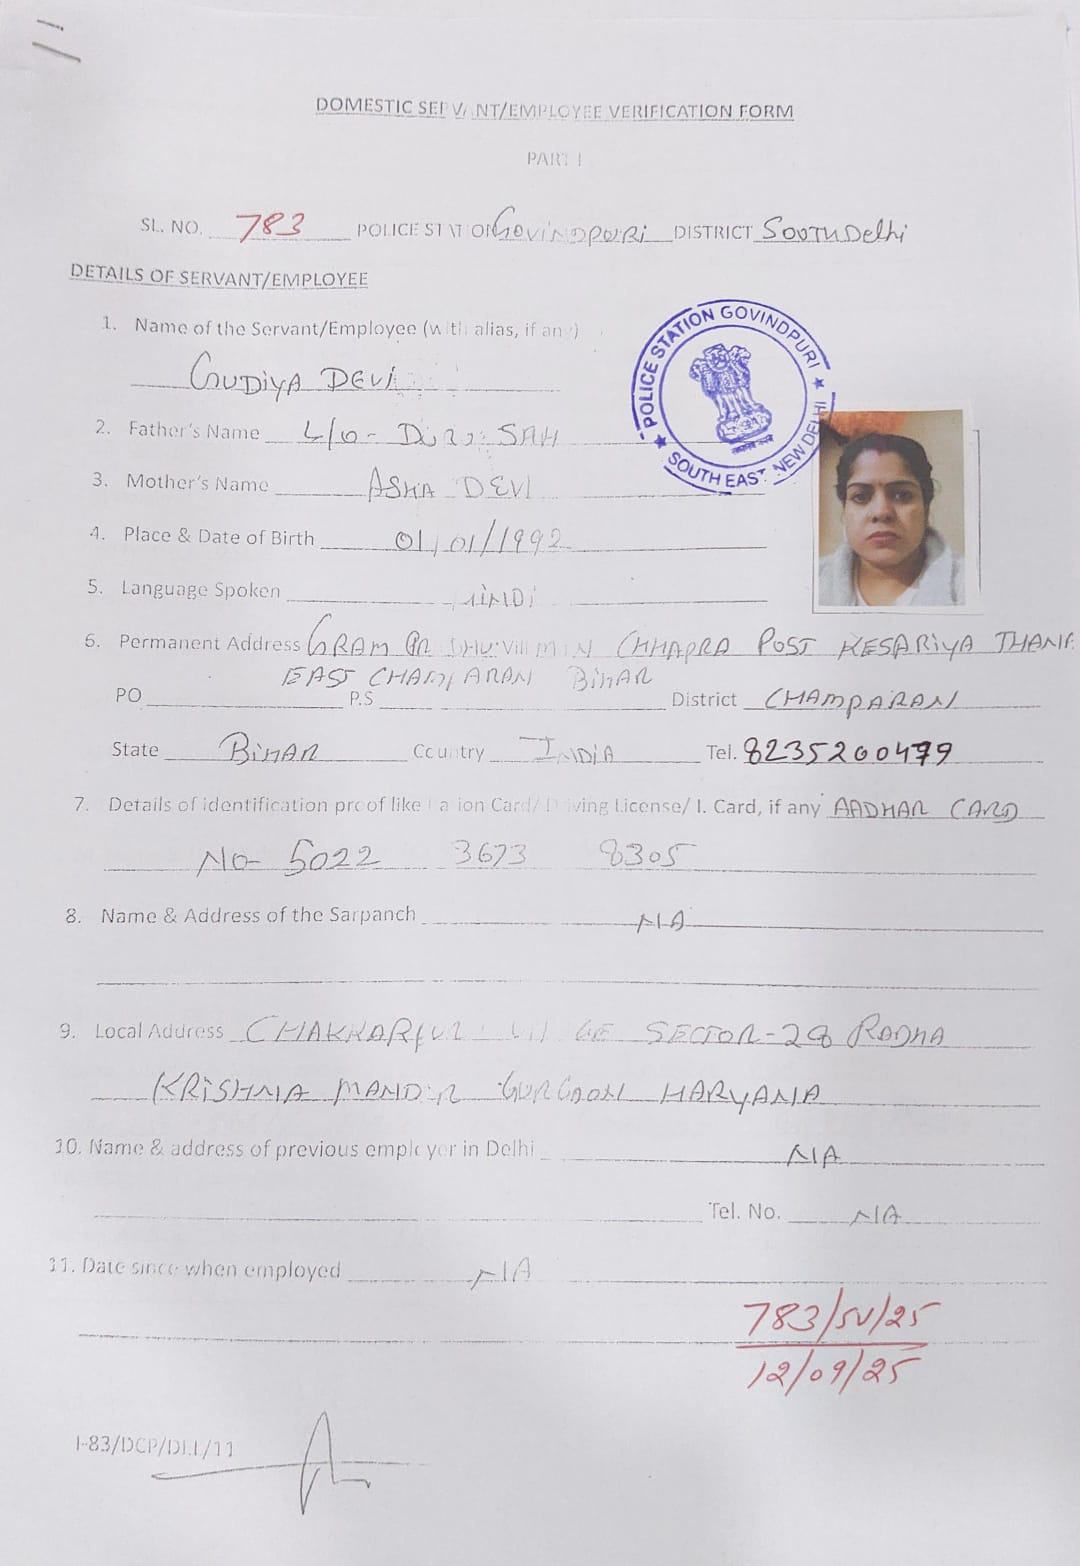 DOMESTIC SERVANT/EMPLOYEE VERIFICATION FORM
PART I
SL. NO. 783 POLICE STATION GOVINDPURI DISTRICT SOUTH Delhi
DETAILS OF SERVANT/EMPLOYEE
1. Name of the Servant/Employee (with alias, if any)
GUDIYA DEVI
POLICE STATION GOVINDPURI
SOUTH EAST NEW DELHI
2. Father's Name SAH
3. Mother's Name ASHA DEVI
4. Place & Date of Birth 01/01/1992
5. Language Spoken HINDI
6. Permanent Address GRAM CHHAPRA POST KESARIYA THANA
EAST CHAMPARAN BIHAR
PO P.S District CHAMPARAN
State BIHAR Country INDIA Tel. 8235200479
7. Details of identification proof like Ration Card/ Driving License/ I. Card, if any AADHAR CARD
NO- 5022 3673 8305
8. Name & Address of the Sarpanch N/A
9. Local Address CHAKKARPUR SECTOR-28 RADHA
KRISHNA MANDIR GURGAON HARYANA
10. Name & address of previous employer in Delhi N/A
Tel. No. N/A
11. Date since when employed N/A
783/SV/25
12/09/25
I-83/DCP/DLI/11